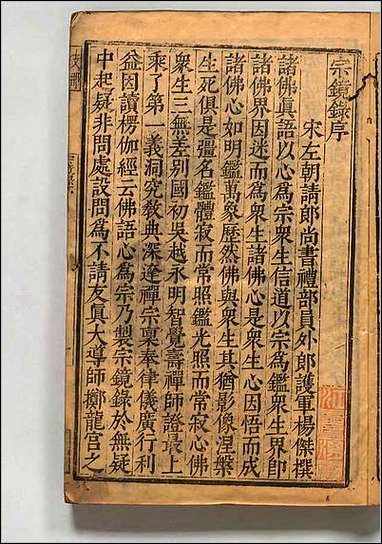 宗鏡錄序
宋左朝請郎尚書禮部員外郎護軍楊傑撰
諸佛真語以心為宗衆生信道以宗為鑑衆生界即
諸佛界因迷而為衆生諸佛心是衆生心因悟而成
諸佛心如明鑑萬象歷然佛與衆生其猶影像涅槃
生死俱是彊名鑑體寂而常照鑑光照而常寂心佛
衆生三無差别國初吳越永明智覺壽禪師證最上
乘了第一義洞究敎典深達禪宗稟奉律儀廣行利
益因讀楞伽經云佛語心為宗乃製宗鏡錄於無疑
中起疑非問處設問為不請友真大導師擲龍宮之